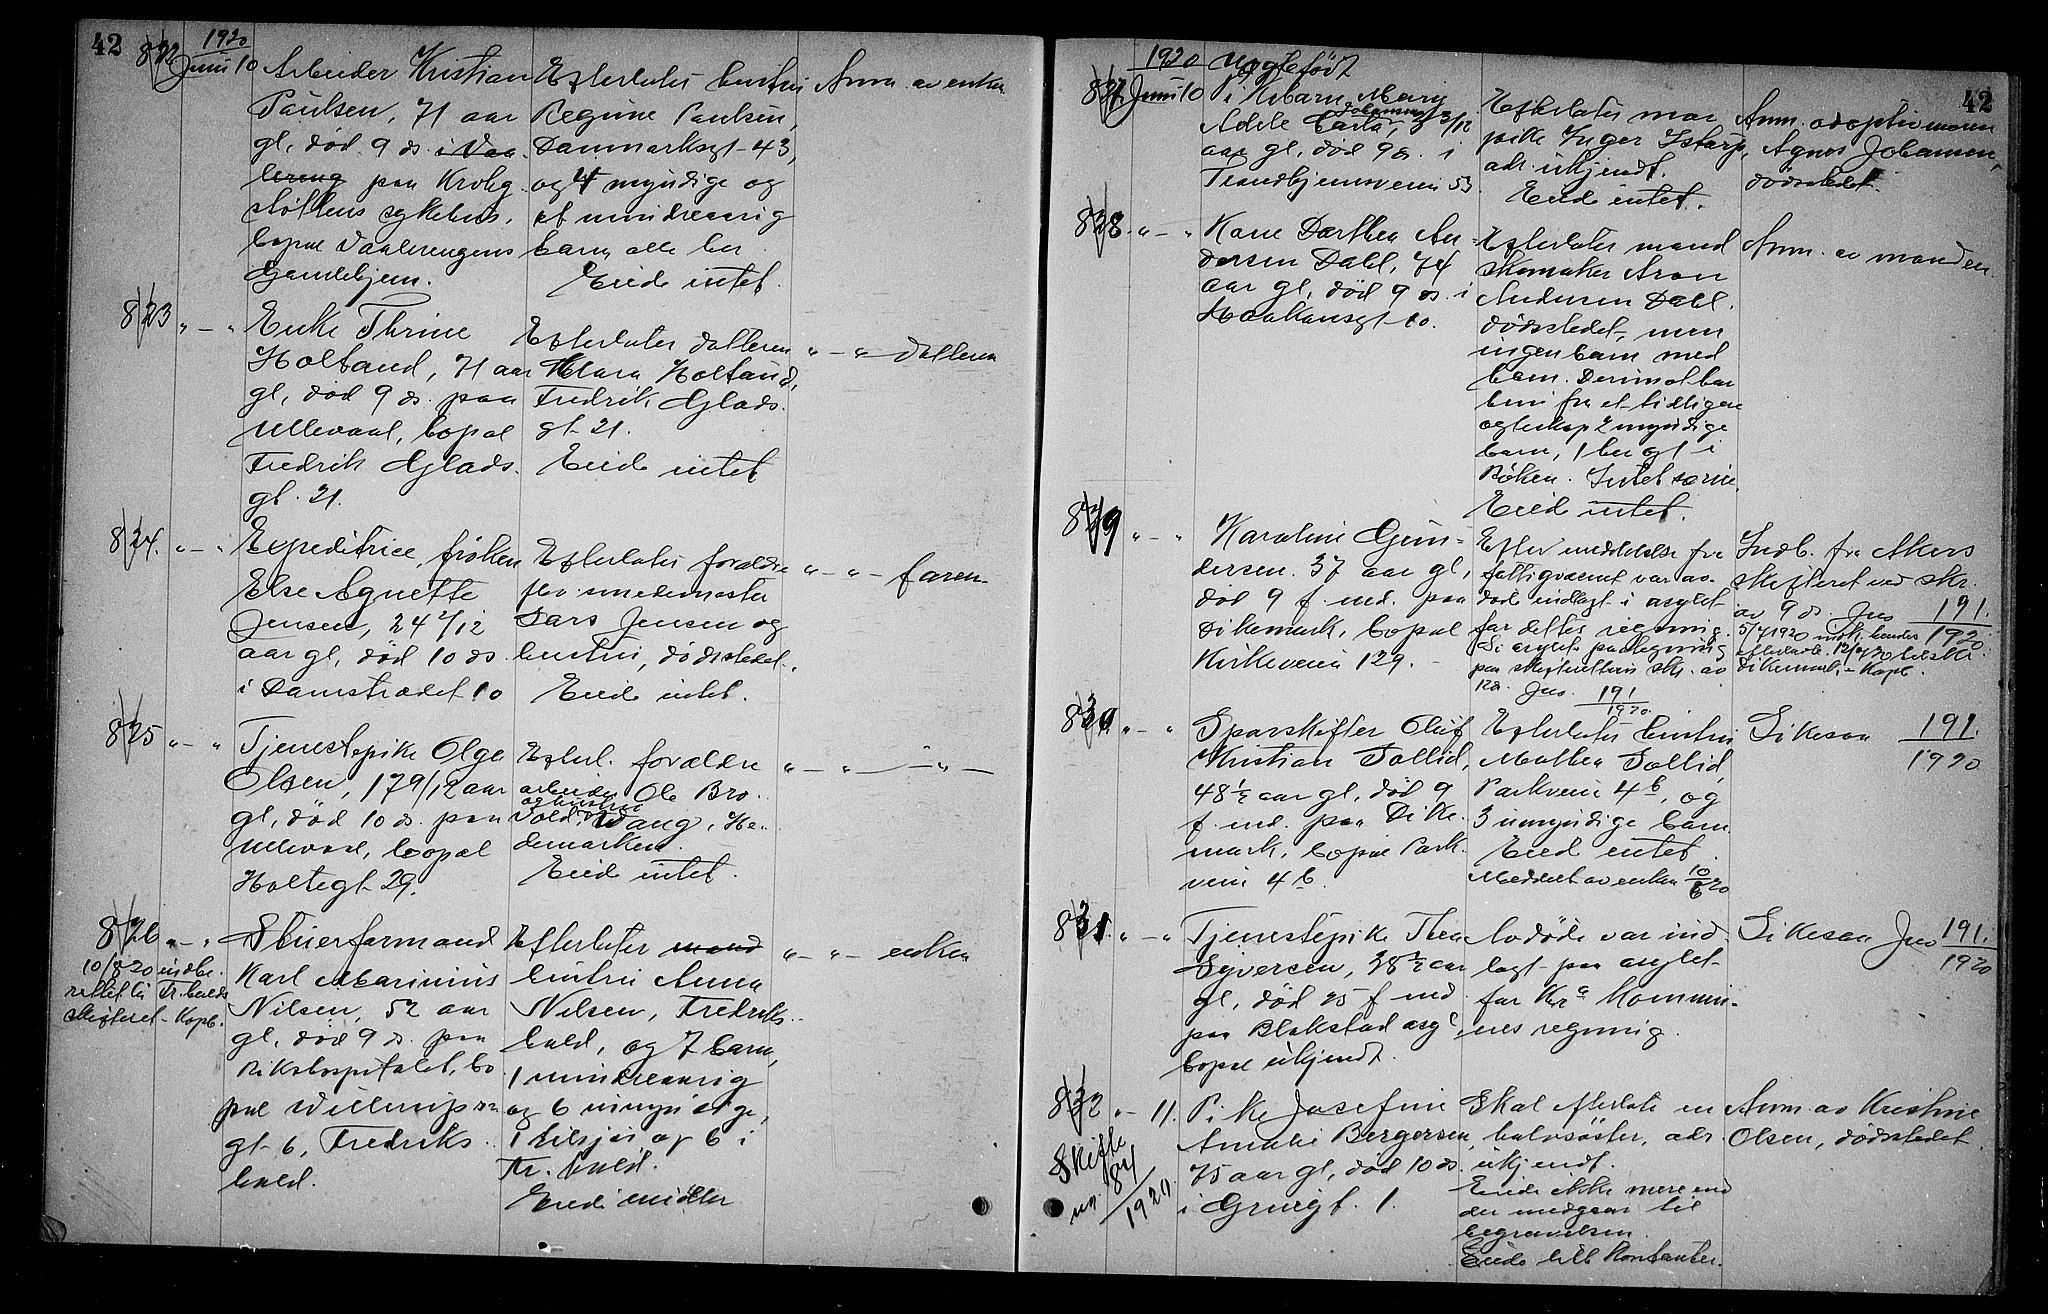 42
1920
822
Juni 10
Arbeider Kristian
Paulsen, 71 aar
gl, död 9 ds. i Vaa-
lereng paa Krohg-
stöttens sykehus,
bopæl Vaalerengens
Gamlehjem.
Efterlater hustru
Regine Paulsen,
Danmarksgt 43,
og 4 myndige og
et mindreaarig
barn, alle her
Eiede intet.
Anm. av enken
823 " — "
Enke Thrine
Holtand, 71 aar
gl, död 9 ds. paa
Ullevaal, bopæl
Fredrik Glads.
gt. 21.
Efterlater datteren
Klara Holtand,
Fredrik Glads.
gt. 21.
Eiede intet
" — " — datteren
824. " — "
Expeditrice, fröken
Else Agnette
Jensen, 24 2/12
aar gl, död 10 ds.
i Damstrædet 10
Efterlater forældre
fhv. smedemester
Lars Jensen og
hustru, dödsstedet.
Eiede intet.
" — " — faren
825 " — "
Tjenestepike Olga
Olsen, 17 9/12 aar
gl, död 10 ds. paa
Ullevaal, bopæl
Holtegt 29.
Efterl. forældre
arbeider Ole Bro-
og hustru
vold, Vang, He-
demarken.
Eiede intet.
" — " — " —
826 " — "
10/8 20 indbe-
rettet til Fr.halds
skifteret - Kopb.
Skuerformand
Karl Marinius
Nilsen, 52 aar
gl, död 9 ds. paa
Rikshospitalet, bo
pæl Willumsens
gt 6, Fredriks-
hald.
Efterlater mand
hustru Anna
Nilsen, Fredriks-
hald, og 7 barn,
1 mindreaarig
og 6 umyndige,
1 tilsjös og 6 i
Fr. hald.
Eiede midler
" — " — enken
42
1920
827
Juni 10
Uegtefödt
Pikebarn Mary
Johansen
Adele Carla, 3/12
aar gl, död 9 ds. i
Trondhjemsveien 53
Efterlater mor
pike Inger Istorp,
adr. ukjendt.
Eiede intet.
Anm. adoptivmoren
Agnes Johansen,
dödsstedet.
828. " — "
Kare Dorthea An-
dersen Dahl, 74
aar gl, död 9 ds. i
Haakonsgt 10.
Efterlater mand
skomaker Aron
Andersen Dahl.
dödsstedet, men
ingen barn med
ham. Derimot har
hun fra et tidligere
egteskap 2 myndige
barn, 1 her og 1 i
Röken. Intet særeie.
Eied intet.
Anm. av manden
829 " — "
Karoline Gun-
dersen. 37 aar gl,
död 9 f. md. paa
Dikemark, bopæl
Kirkeveien 129.
Efter meddelelse fra
fattigvæsenet var av-
döde indlagt i asylet
for dettes regning.
Se asylets paategning
paa skifterettens skr. av
12 ds. Jns. 191/1920.
Indb. fra Akers
skifteret ved skr.
av 9 ds. Jns 191./1920
5/7 1920 indk. hendes
Dikemark. - Kopb.
830 " — "
Sporskifter Oluf
Kristian Sollid,
48 1/2 aar gl, död 9
f. md. paa Dike-
mark, bopæl Park-
veien 4 b.
Efterlater hustru
Mathea Sollid
Parkveien 4 b, og
3 umyndige barn
Eied intet
Meddelt av enken 10/6 20
Likesaa 191./1920
831. " — "
Tjenestepike Thea
Syversen, 38 1/2 aar
gl, död 25 f. md
paa Blakstad asyl
bopæl ukjendt.
Avdöde var ind-
lagt paa asylet
for Kra Kommu-
nes regning.
Likesaa Jns 191./1920
832 " — 11.
Skifte
no. 84/1920.
Pike Josefine
Amalie Bergersen,
75 aar gl, död 10 ds.
i Grünigt. 1.
Skal efterlate en
halvsöster, adr.
ukjendt.
Eiede ikke mere end
der medgaar til
begravelsen.
Eiede litt kontanter.
Anm. av Kristine
Olsen, dödsstedet